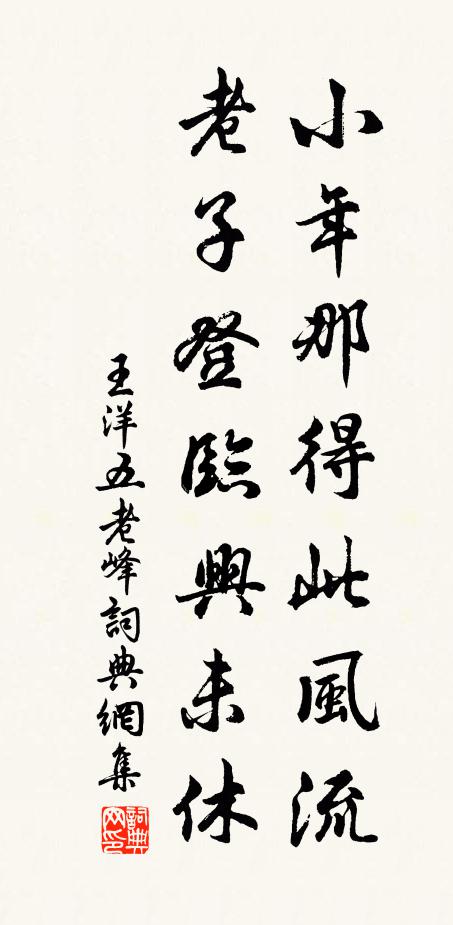 小年那得此風流
老子登臨興未休
王洋五老峰詞典網集
詞典网印